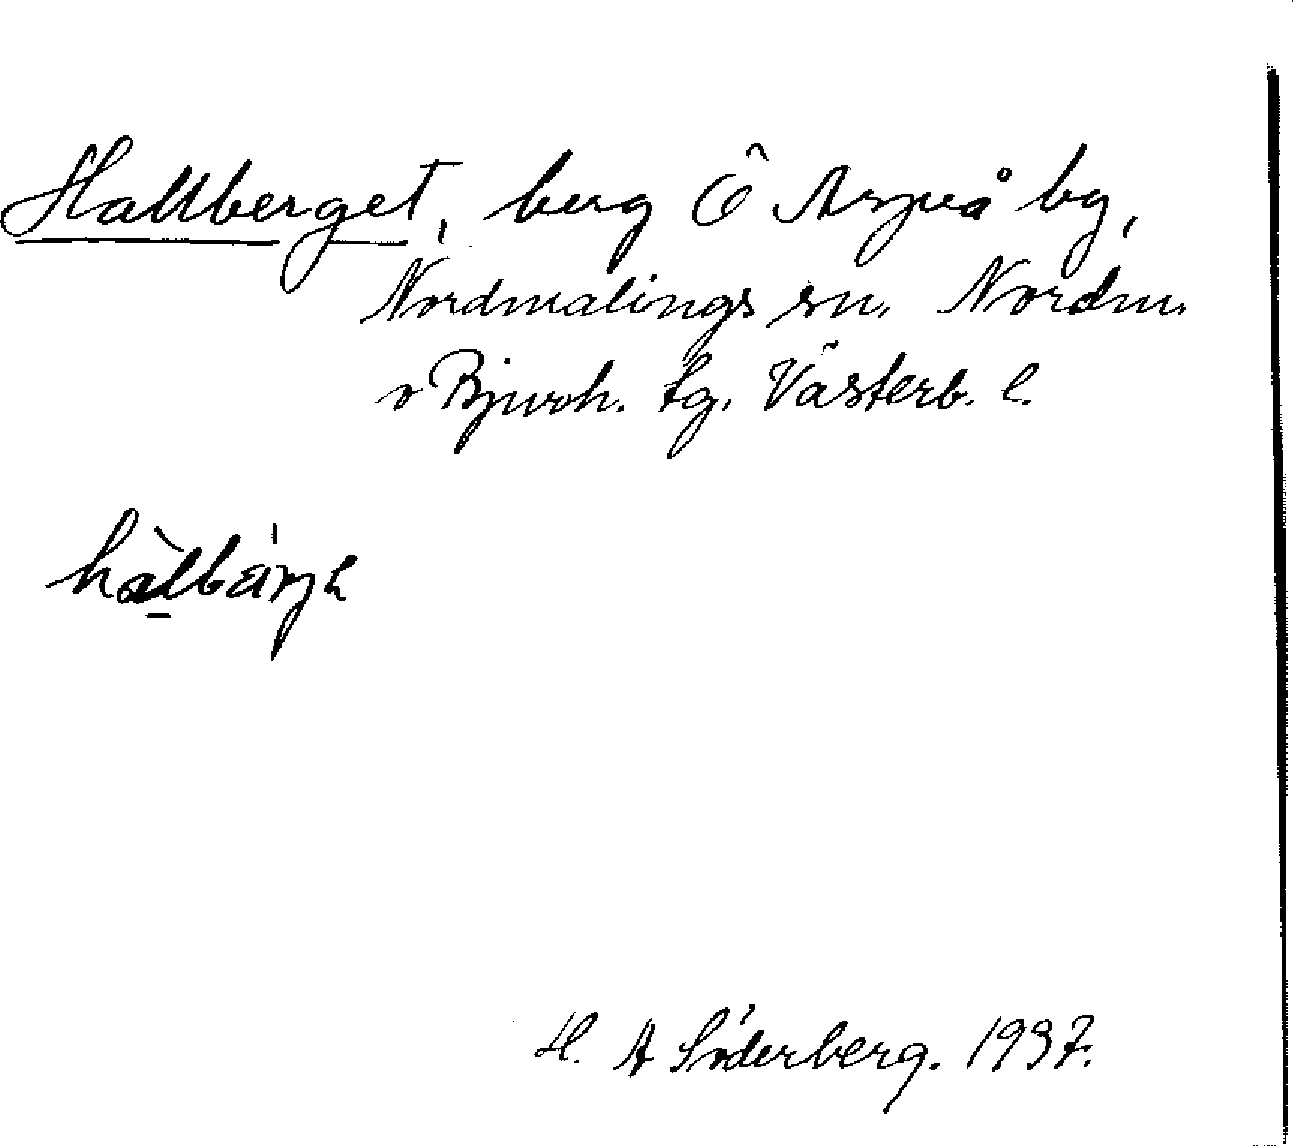 Hallberget, berg Ö Aspeå by,
Nordmalings sn. Nordm.
o Bjurh. tg. Västerb. l.
H. A Söderberg. 1937.